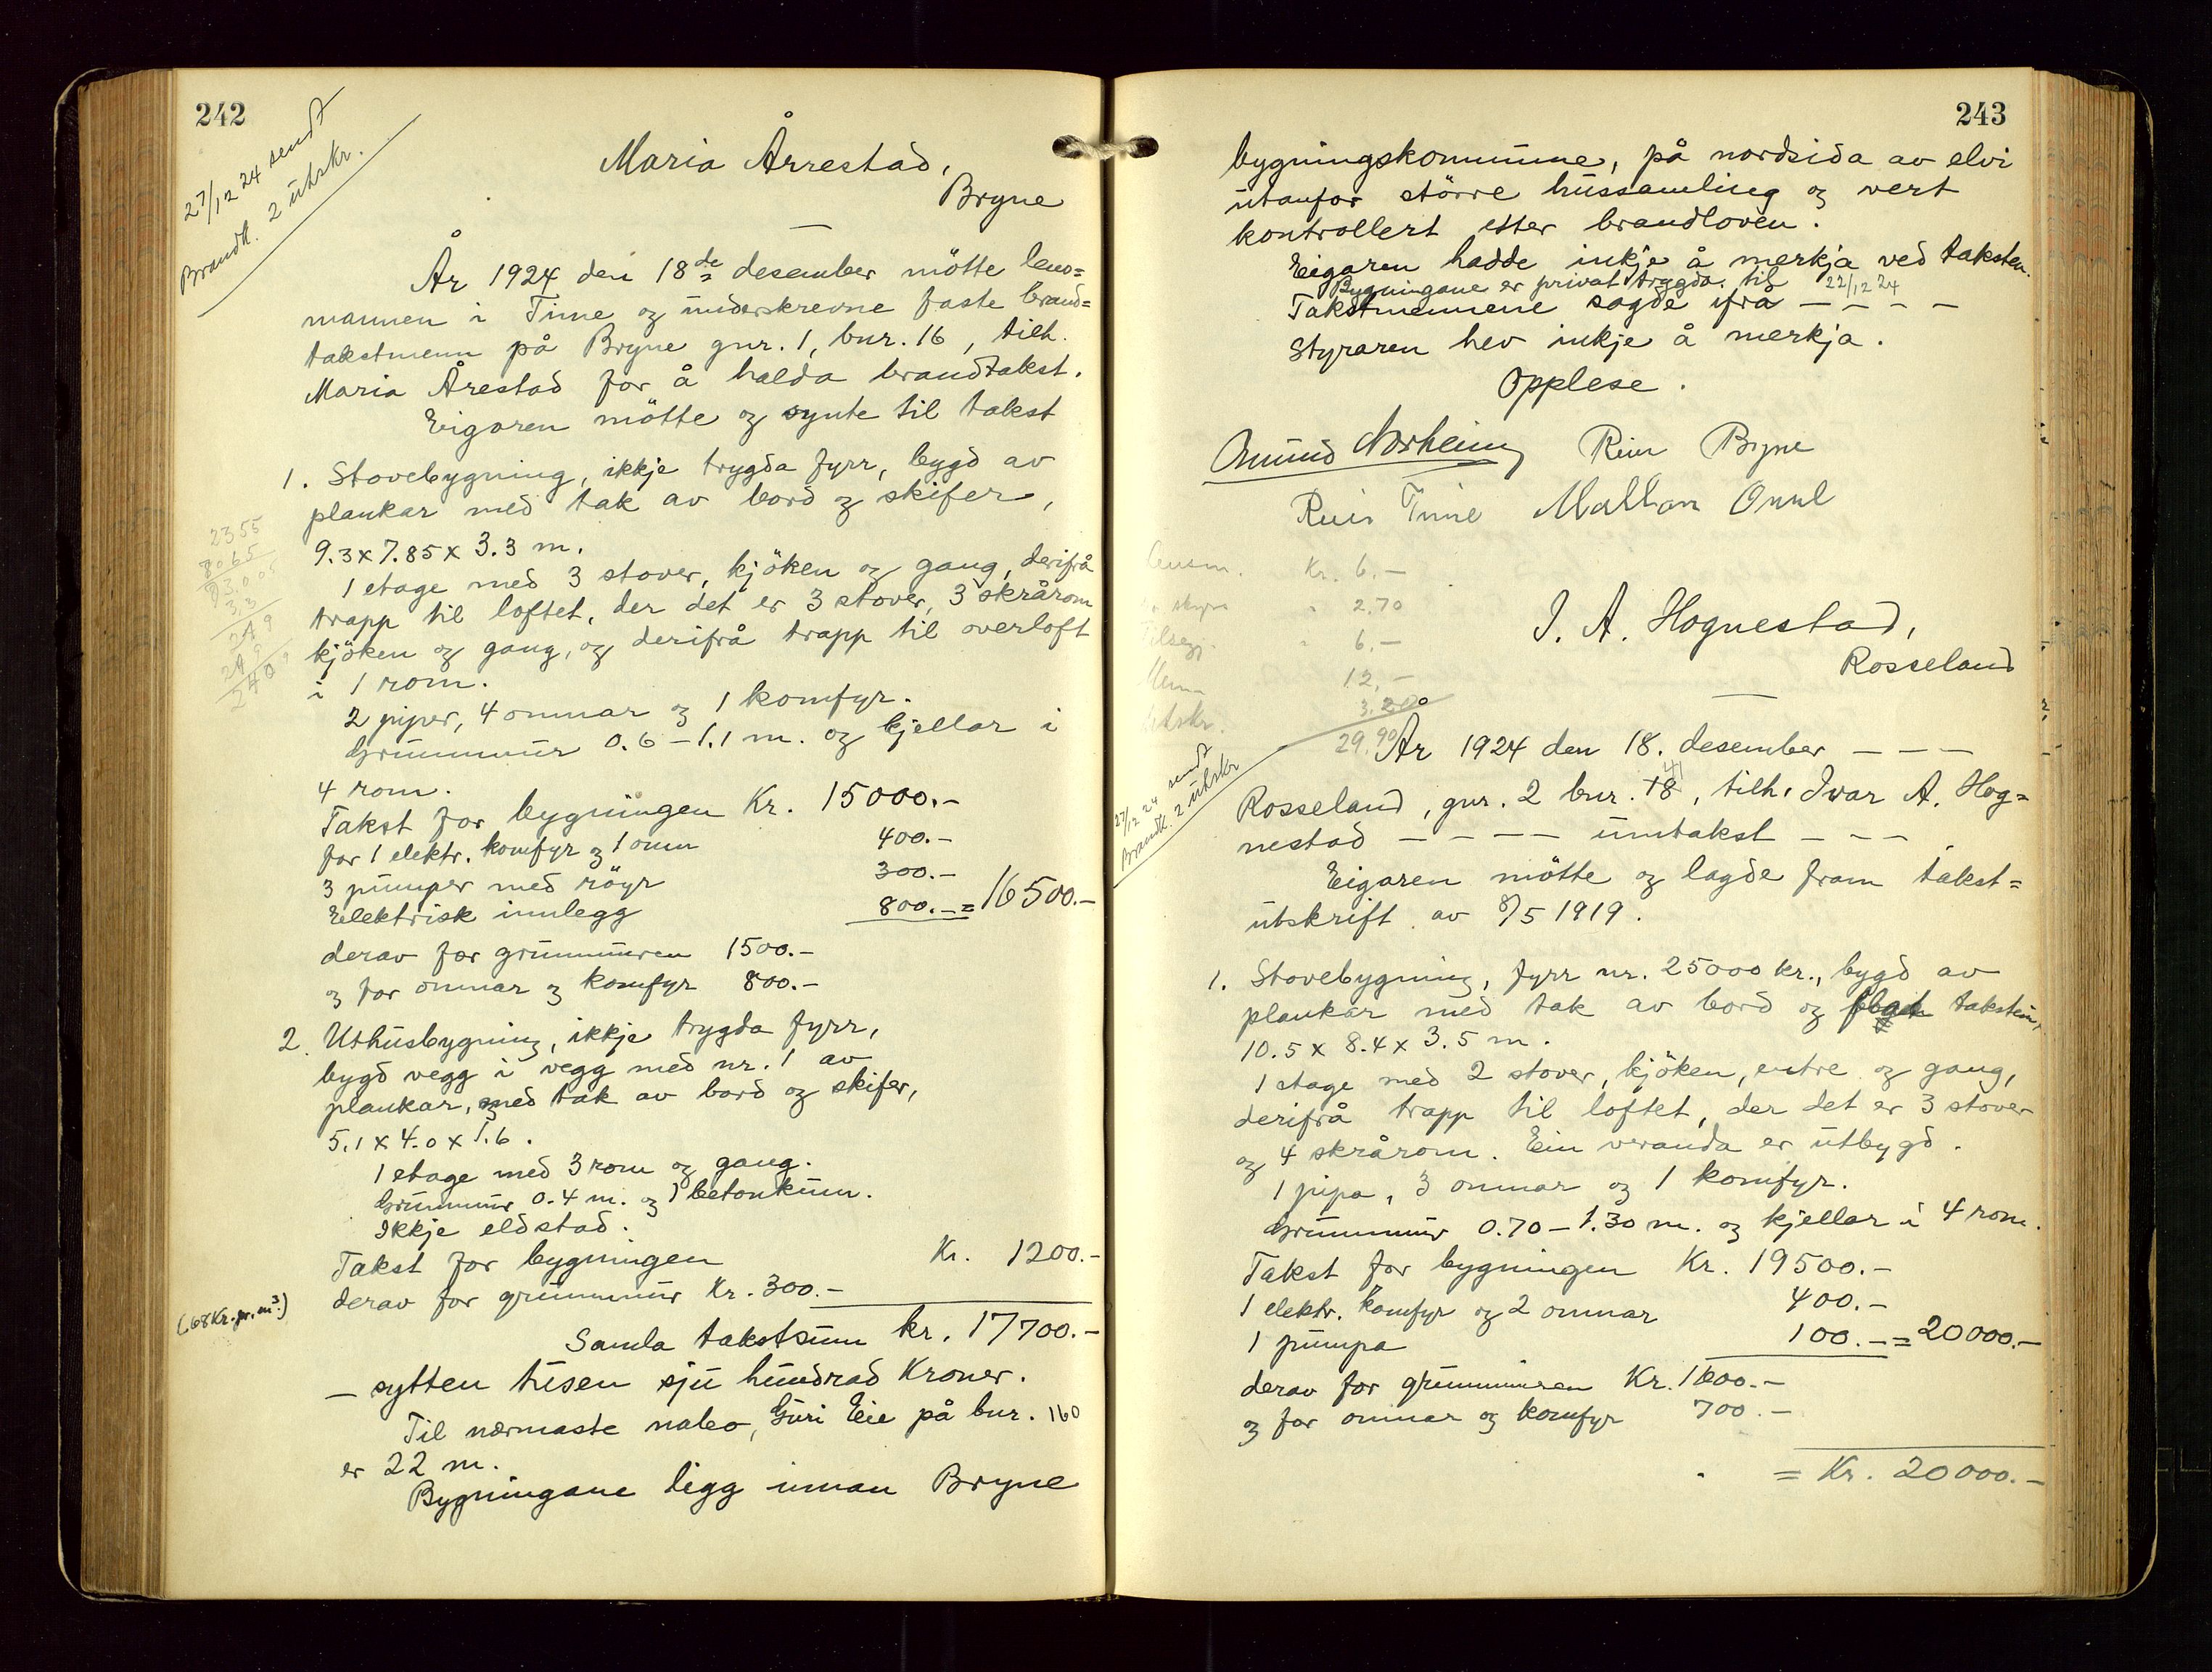 242
27/12 24 sendt
Brandk. 2 utskr.
Maria Årrestad,
Bryne
År 1924 den 18de desember mötte lens=
mannen i Time og underskrevne faste brand=
takstmenn på Bryne gnr. 1, bnr. 16, tilh.
Maria Årestad for å halda brandtakst.
Eigaren mötte og synte til takst
1. Stovebygning, ikkje trygda fyrr, bygd av
plankar med tak av bord og skifer,
9.3 x 7.85 x 3.3 m.
1 etage med 3 stover, kjöken og gang, derifrå
trapp til loftet, der det er 3 stover, 3 skrårom
kjöken og gang, og derifrå trapp til overloft
i 1 rom.
2 piper, 4 omnar og 1 komfyr.
Grunnmur 0.6 – 1.1 m. og kjellar i
4 rom.
Takst for bygningen Kr. 15000.-
for 1 elektr. komfyr og 1 omn 400.-
3 pumper med röyr 300.-
Elektrisk innlegg 800.- = 16500.-
derav for grunnmuren 1500.-
og for omnar og komfyr 800.-
2. Uthusbygning, ikkje trygda fyrr,
bygd vegg i vegg med nr. 1 av
plankar, med tak av bord og skifer,
5.1 x 4.0 x 1.6.
1 etage med 3 rom og gang.
Grunnmur 0.4 m. og 1 betonkum.
Ikkje eldstad.
Takst for bygningen Kr. 1200.-
derav for grunnmur Kr. 300.-
(68 Kr. pr. m³.)
Samla takstsum kr. 17700.-
– sytten tusen sju hundrad Kroner.
Til nærmaste nabo, Guri Eie på bnr. 160
er 22 m.
Bygningane ligg innan Bryne
243
bygningskommune, på nordsida av elvi
utanfor större hussamling og vert
kontrollert etter brandloven.
Eigaren hadde inkje å merkja ved taksten.
Bygningane er privat trygda til 22/12 24
Takstmennene sagde ifrå – – – –
Styraren hev inkje å merkja.
Opplese.
Omund Norheim Reier Bryne
Reier Time
Lensm. Kr. 6.–
" skyss " 2.70
" 6.–
12.–
Utskr. 3.20
29.90
I. A. Hognestad,
Rosseland
27/12 24 sendt
Brandk. 2 utskr
År 1924 den 18. desember – – –
41
Rosseland, gnr. 2 bnr. 18, tilh. Ivar A. Hog=
nestad – – – – umtakst – – – .
Eigaren mötte og lagde fram takst=
utskrift av 8/5 1919.
1. Stovebygning, fyrr nr. 25000 kr., bygd av
plankar med tak av bord og takstein,
10.5 x 8.4 x 3.5 m.
1 etage med 2 stover, kjöken, entre og gang,
derifrå trapp til loftet, der det er 3 stover
og 4 skrårom. Ein veranda er utbygd.
1 pipa, 3 omnar og 1 komfyr.
Grunnmur 0.70 – 1.30 m. og kjellar i 4 rom.
Takst for bygningen Kr. 19500.-
1 elektr. komfyr og 2 omnar 400.-
1 pumpa 100.- = 20000.-
derav for grunnmuren Kr. 1600.-
og for omnar og komfyr 700.-
= Kr. 20000.-